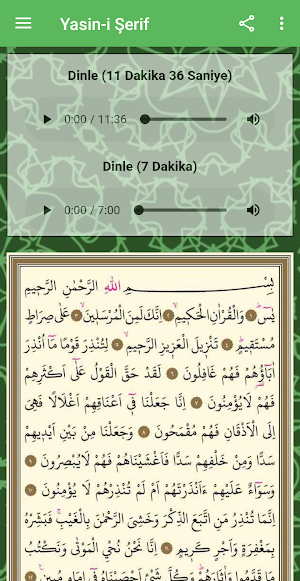 Yasin-i Şerif
Dinle (11 Dakika 36 Saniye)
0:00 / 11:36
Dinle (7 Dakika)
0:00 / 7:00
بِسْمِ اللّٰهِ الرَّحْمٰنِ الرَّحٖيمِ
يٰسٓ ﴿١﴾ وَالْقُرْاٰنِ الْحَكٖيمِ ﴿٢﴾ اِنَّكَ لَمِنَ الْمُرْسَلٖينَ ﴿٣﴾ عَلٰى صِرَاطٍ
مُسْتَقٖيمٍ ﴿٤﴾ تَنْزٖيلَ الْعَزٖيزِ الرَّحٖيمِ ﴿٥﴾ لِتُنْذِرَ قَوْمًا مَٓا اُنْذِرَ
اٰبَٓاؤُ۬هُمْ فَهُمْ غَافِلُونَ ﴿٦﴾ لَقَدْ حَقَّ الْقَوْلُ عَلٰٓى اَكْثَرِهِمْ
فَهُمْ لَا يُؤْمِنُونَ ﴿٧﴾ اِنَّا جَعَلْنَا فٖٓي اَعْنَاقِهِمْ اَغْلَالًا فَهِيَ
اِلَى الْاَذْقَانِ فَهُمْ مُقْمَحُونَ ﴿٨﴾ وَجَعَلْنَا مِنْ بَيْنِ اَيْدٖيهِمْ
سَدًّا وَمِنْ خَلْفِهِمْ سَدًّا فَاَغْشَيْنَاهُمْ فَهُمْ لَا يُبْصِرُونَ ﴿٩﴾
وَسَوَٓاءٌ عَلَيْهِمْ ءَاَنْذَرْتَهُمْ اَمْ لَمْ تُنْذِرْهُمْ لَا يُؤْمِنُونَ ﴿١٠﴾
اِنَّمَا تُنْذِرُ مَنِ اتَّبَعَ الذِّكْرَ وَخَشِيَ الرَّحْمٰنَ بِالْغَيْبِ فَبَشِّرْهُ
بِمَغْفِرَةٍ وَاَجْرٍ كَرٖيمٍ ﴿١١﴾ اِنَّا نَحْنُ نُحْيِ الْمَوْتٰى وَنَكْتُبُ
مَا قَدَّمُوا وَاٰثَارَهُمْ وَكُلَّ شَيْءٍ اَحْصَيْنَاهُ فٖٓي اِمَامٍ مُبٖينٍ